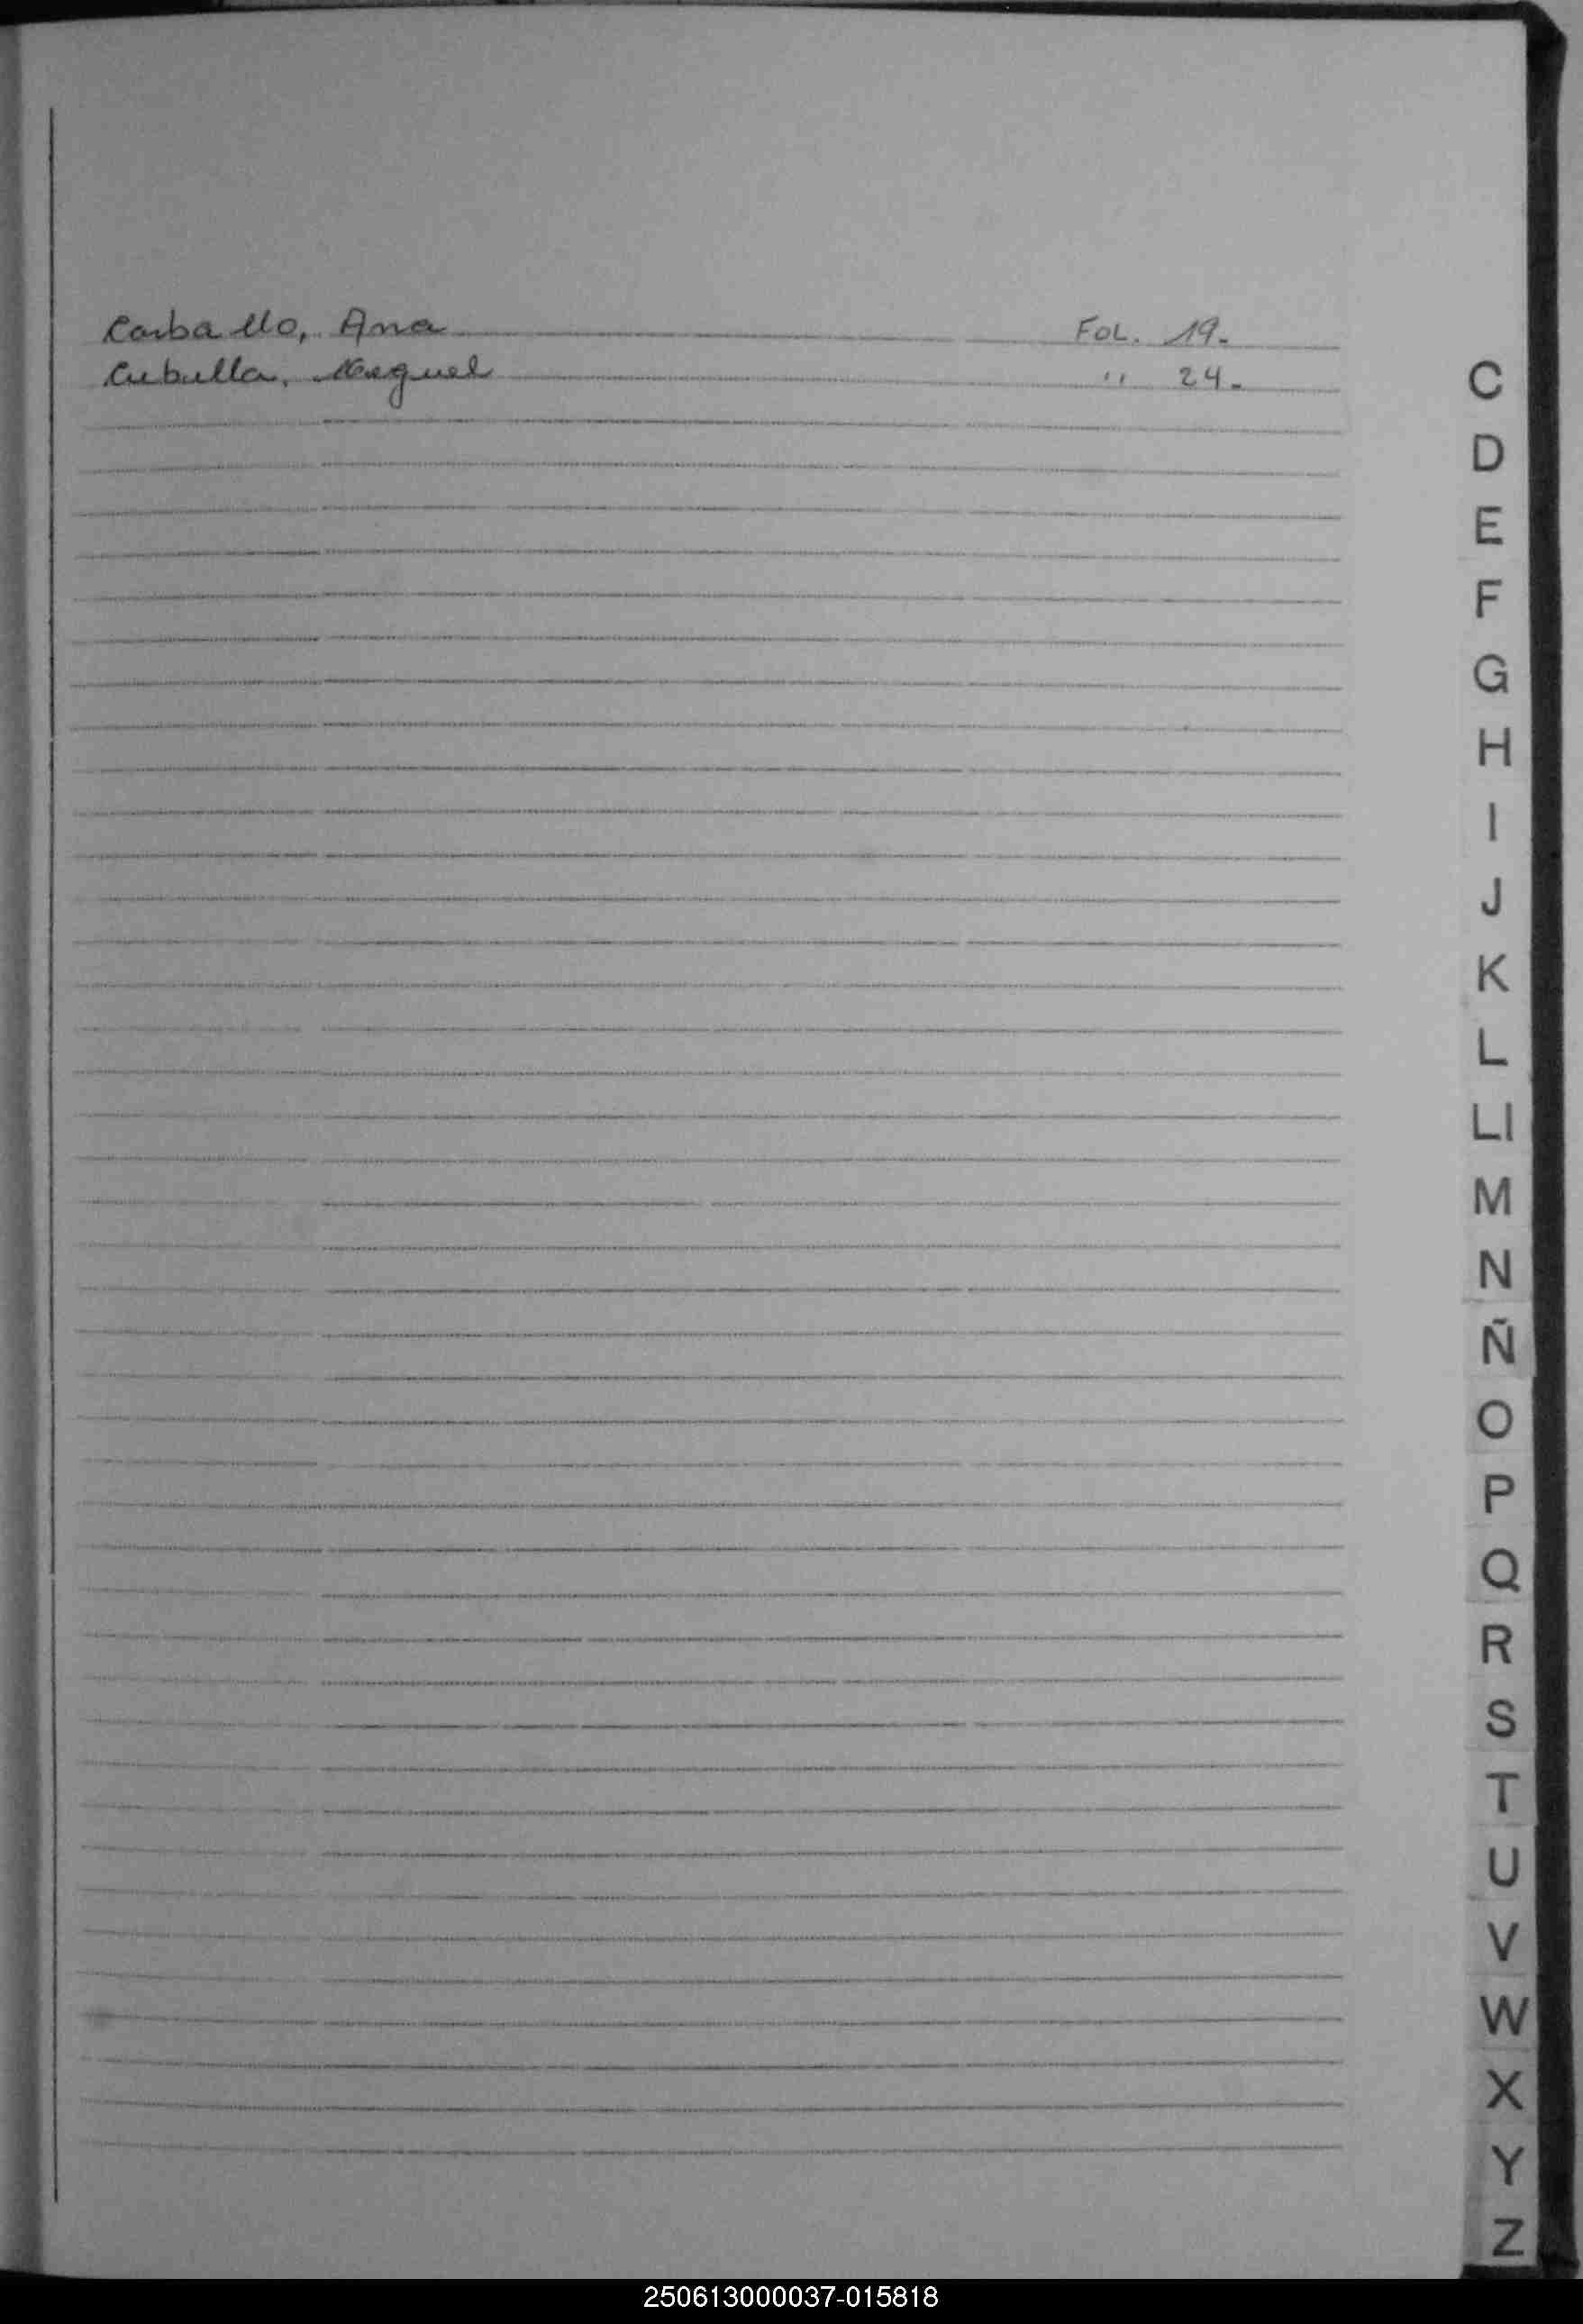 Carballo, Ana Fol. 19.
Cubilla, Miguel " 24.
C
D
E
F
G
H
I
J
K
L
Ll
M
N
Ñ
O
P
Q
R
S
T
U
V
W
X
Y
Z
250613000037-015818